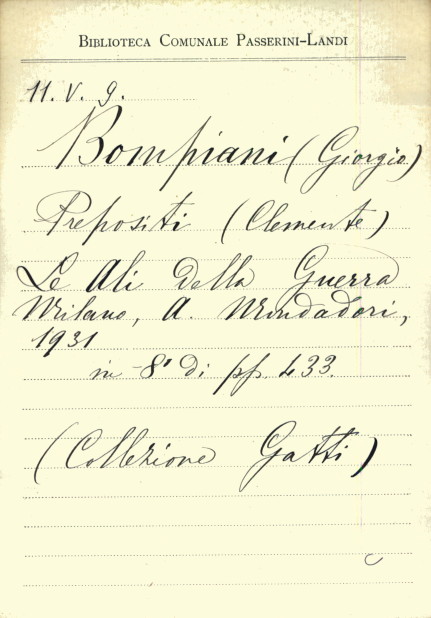 BIBLIOTECA COMUNALE PASSERINI-LANDI
11. V. 9.
Bompiani (Giorgio)
Prepositi (Clemente)
Le Ali della Guerra
Milano, A. Mondadori,
1931
in -8° di pp. 433.
(Collezione Gatti)